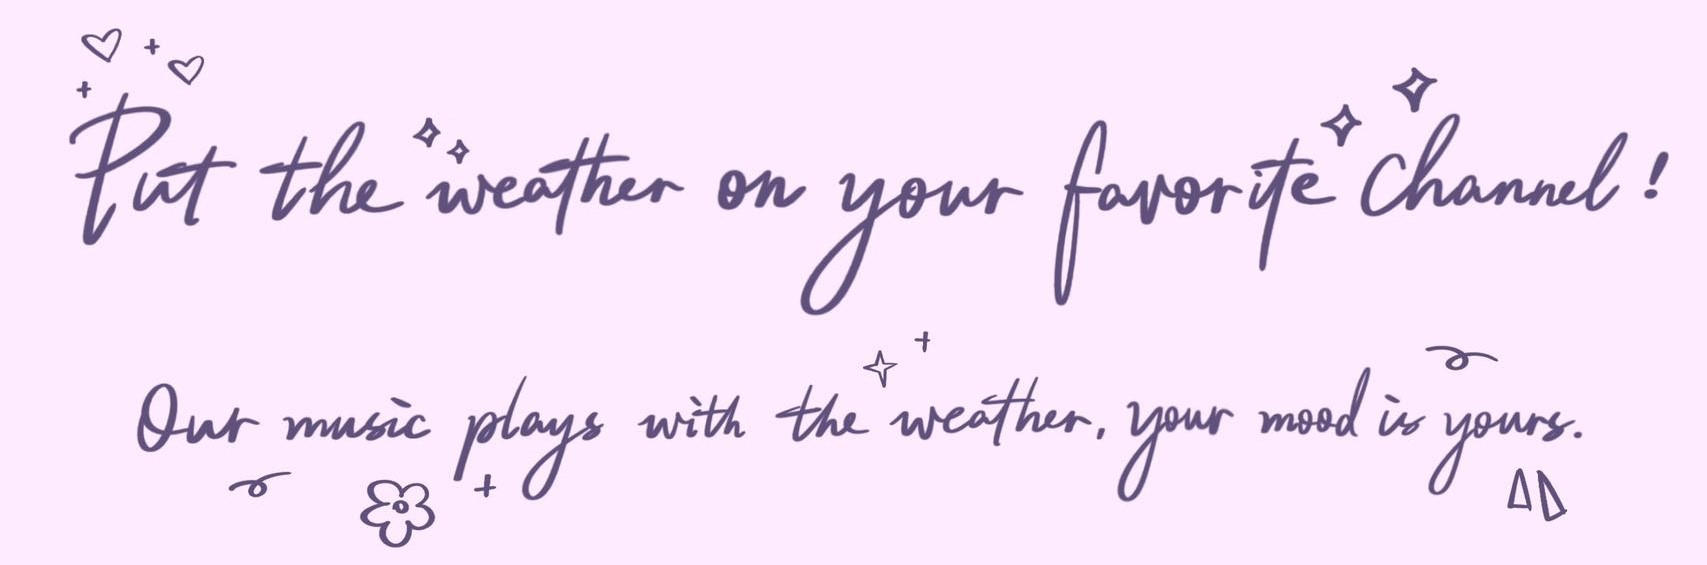 Put the weather on your favorite channel!
Our music plays with the weather, your mood is yours.